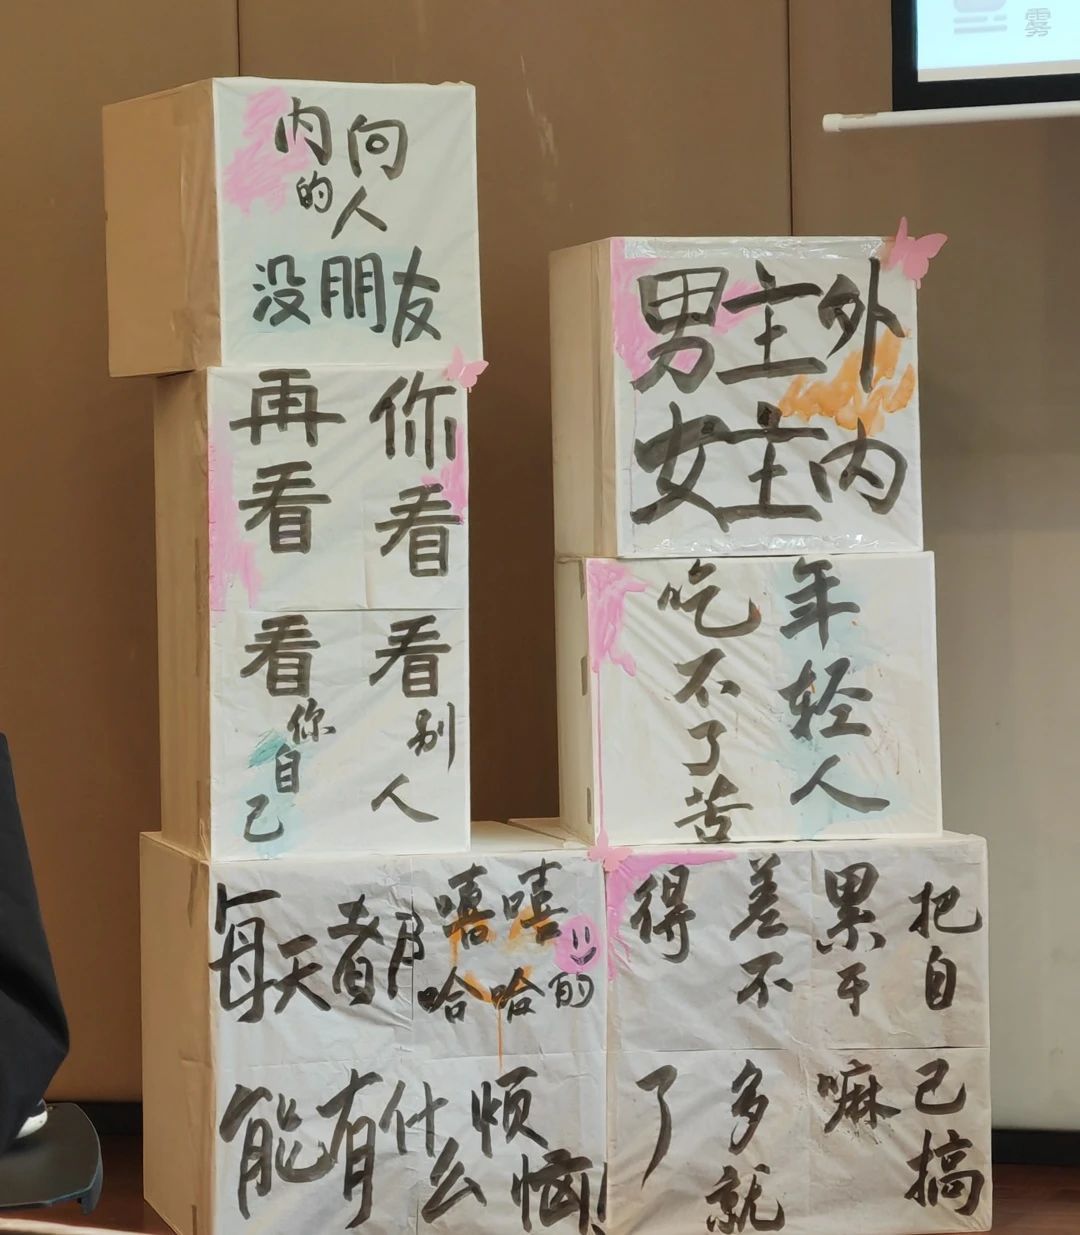 雾
内向
的人
没朋友
你看看别人
再看看你自己
男主外
女主内
年轻人
吃不了苦
每天都嘻嘻
哈哈的
能有什么烦恼!
把自己搞
累干嘛
差不多就
得了